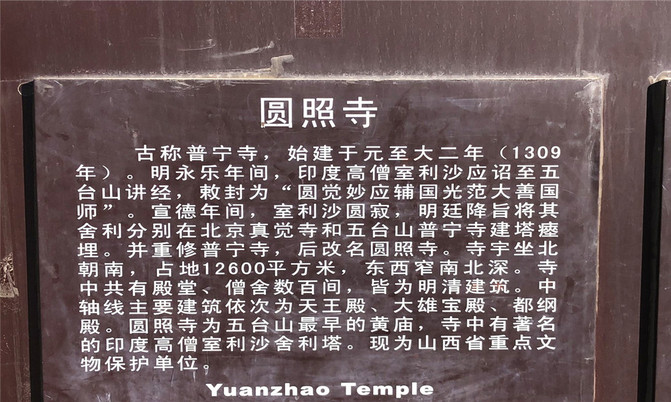 圆照寺
古称普宁寺，始建于元至大二年（1309
年）。明永乐年间，印度高僧室利沙应诏至五
台山讲经，敕封为“圆觉妙应辅国光范大善国
师”。宣德年间，室利沙圆寂，明廷降旨将其
舍利分别在北京真觉寺和五台山普宁寺建塔瘗
埋。并重修普宁寺，后改名圆照寺。寺宇坐北
朝南，占地12600平方米，东西窄南北深。寺
中共有殿堂、僧舍数百间，皆为明清建筑。中
轴线主要建筑依次为天王殿、大雄宝殿、都纲
殿。圆照寺为五台山最早的黄庙，寺中有著名
的印度高僧室利沙舍利塔。现为山西省重点文
物保护单位。
Yuanzhao Temple